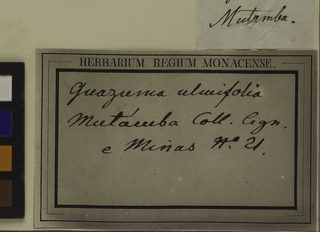 Mutamba.
HERBARIUM REGIUM MONACENSE.
Guazuma ulmifolia
Mutámba Coll. Lign.
e Minas No. 21.